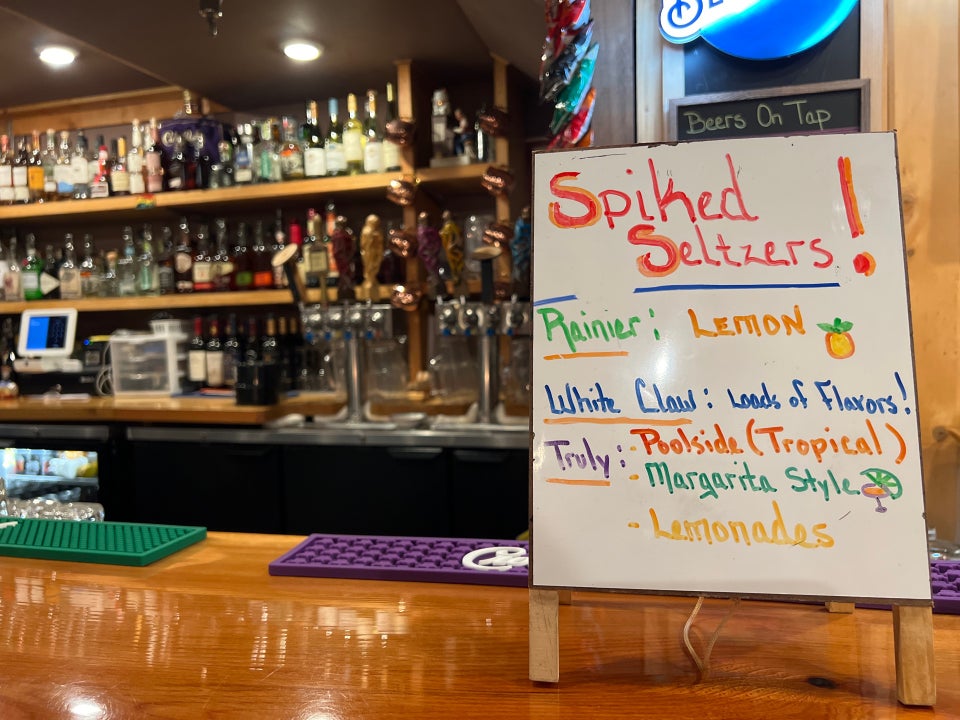 Beers On Tap
Spiked
Seltzers!
Rainier: LEMON
White Claw: Loads of Flavors!
Truly: - Poolside (Tropical)
- Margarita Style
- Lemonades